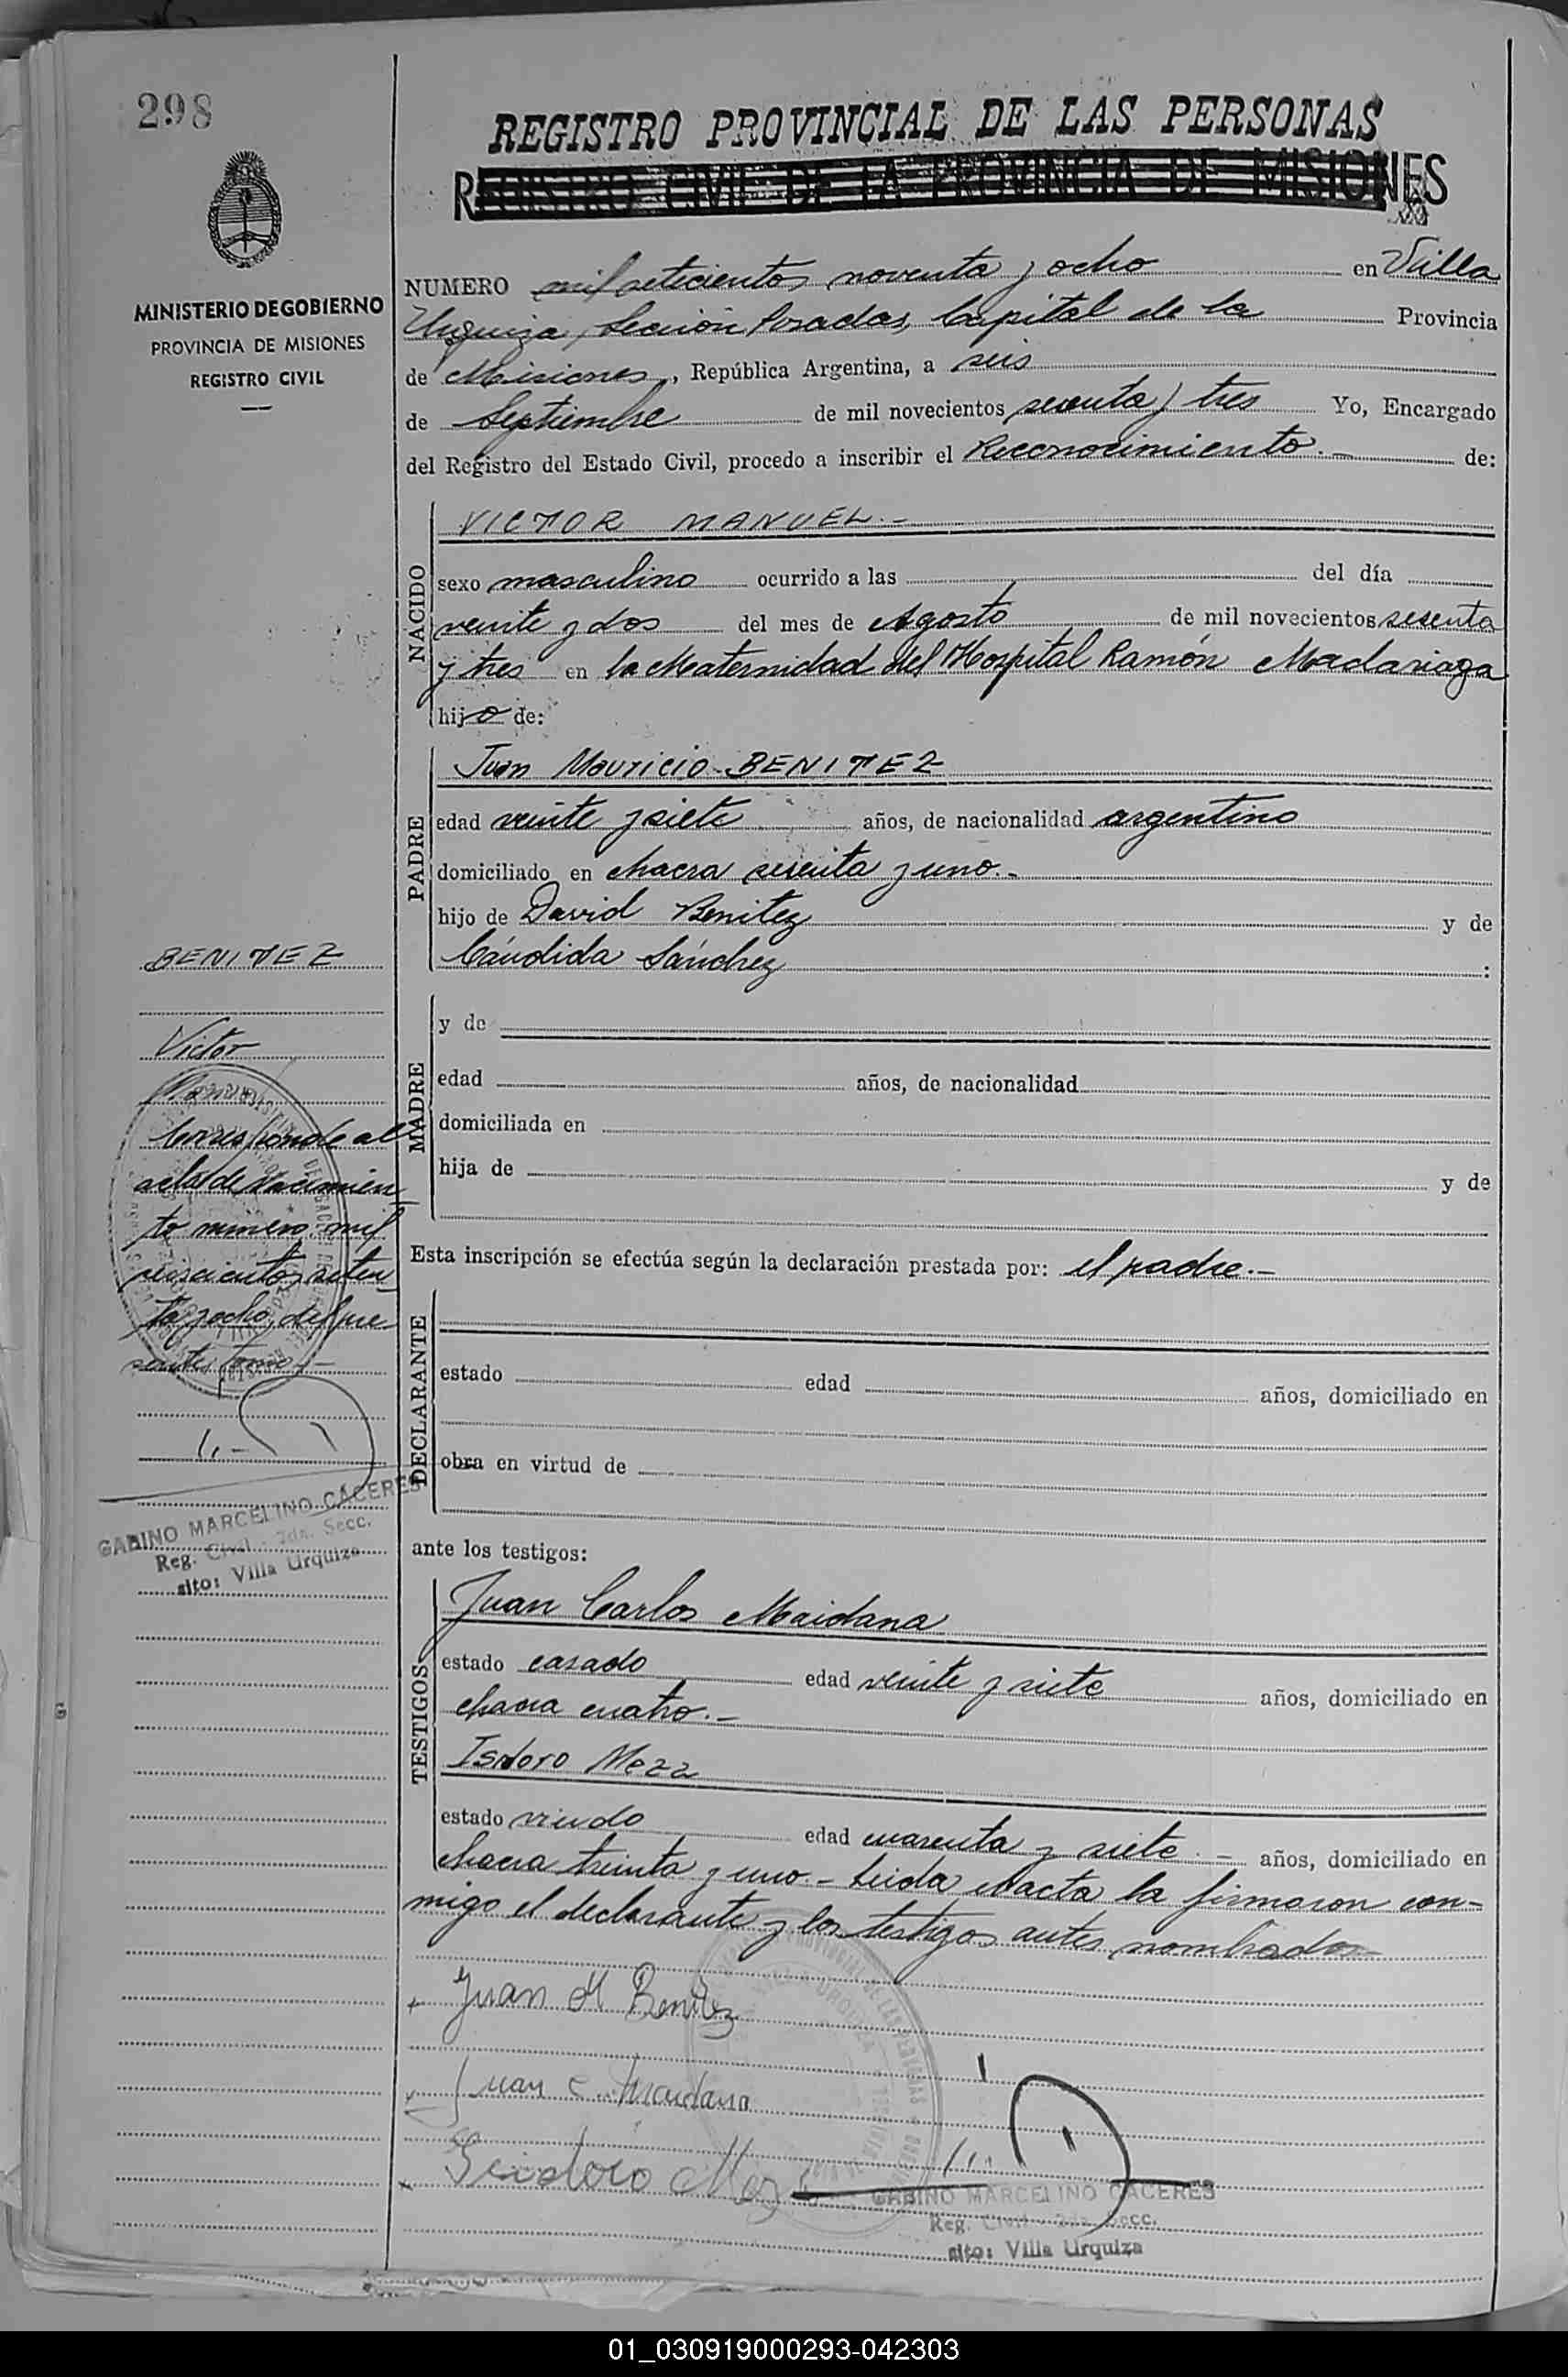 298
REGISTRO PROVINCIAL DE LAS PERSONAS
REGISTRO CIVIL DE LA PROVINCIA DE MISIONES
MINISTERIO DE GOBIERNO
PROVINCIA DE MISIONES
REGISTRO CIVIL
NUMERO mil setecientos noventa y ocho en Villa
Urquiza, Sección Posadas, Capital de la Provincia
de Misiones, República Argentina, a seis
de Septiembre de mil novecientos sesenta y tres Yo, Encargado
del Registro del Estado Civil, procedo a inscribir el Reconocimiento.- de:
NACIDO
VICTOR MANUEL.-
sexo masculino ocurrido a las del día
veinte y dos del mes de Agosto de mil novecientos sesenta
y tres en la Maternidad del Hospital Ramón Madariaga
hijo de:
PADRE
Juan Mauricio BENITEZ
edad veinte y siete años, de nacionalidad argentino
domiciliado en chacra sesenta y uno.-
hijo de David Benitez y de
Cándida Sánchez :
MADRE
y de
edad años, de nacionalidad
domiciliada en
hija de y de
Esta inscripción se efectúa según la declaración prestada por: el padre.-
DECLARANTE
estado edad años, domiciliado en
obra en virtud de
ante los testigos:
TESTIGOS
Juan Carlos Maidana
estado casado edad veinte y siete años, domiciliado en
chacra cuatro.-
Isidoro Meza
estado viudo edad cuarenta y siete.- años, domiciliado en
chacra treinta y uno.- Leida el acta la firmaron con-
migo el declarante y los testigos antes nombrados
Juan M Benitez
Juan C. Maidana
Isidoro Meza
GABINO MARCELINO CACERES
Reg. Civil - 2da. Secc.
sito: Villa Urquiza
BENITEZ
Victor
Manuel
Corresponde al
acta de nacimien
to número mil
seiscientos seten
ta y ocho, del pre
sente tomo.-
GABINO MARCELINO CACERES
Reg. Civil - 2da. Secc.
sito: Villa Urquiza
01_030919000293-042303